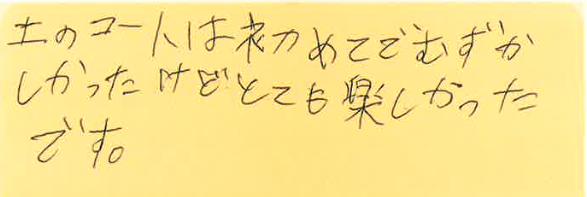 土のコートは初めてでむずか
しかったけどとても楽しかった
です。